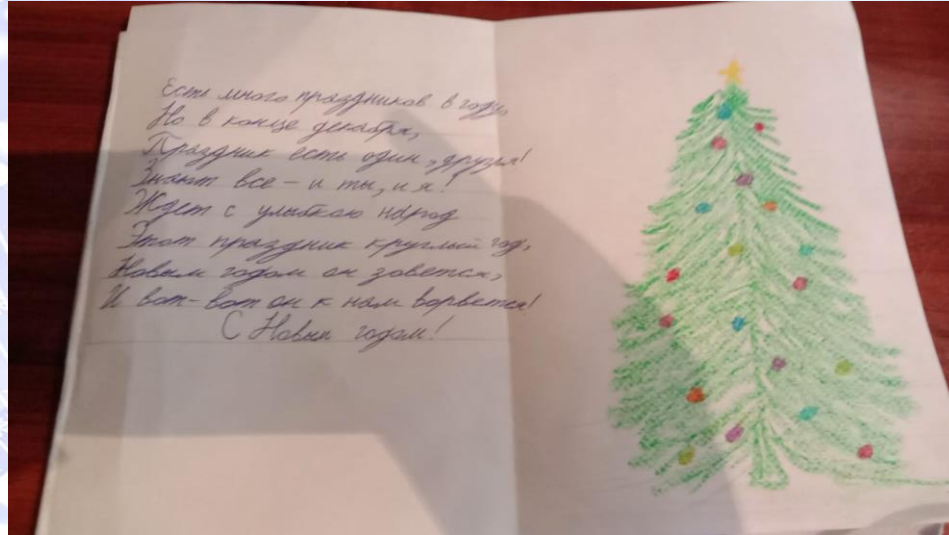 Есть много праздников в году,
Но в конце декабря,
Праздник есть один, друзья!
Знают все - и ты, и я!
Ждет с улыбкою народ
Этот праздник круглый год,
Новым годом он зовется,
И вот-вот он к нам ворвется!
С Новым годом!